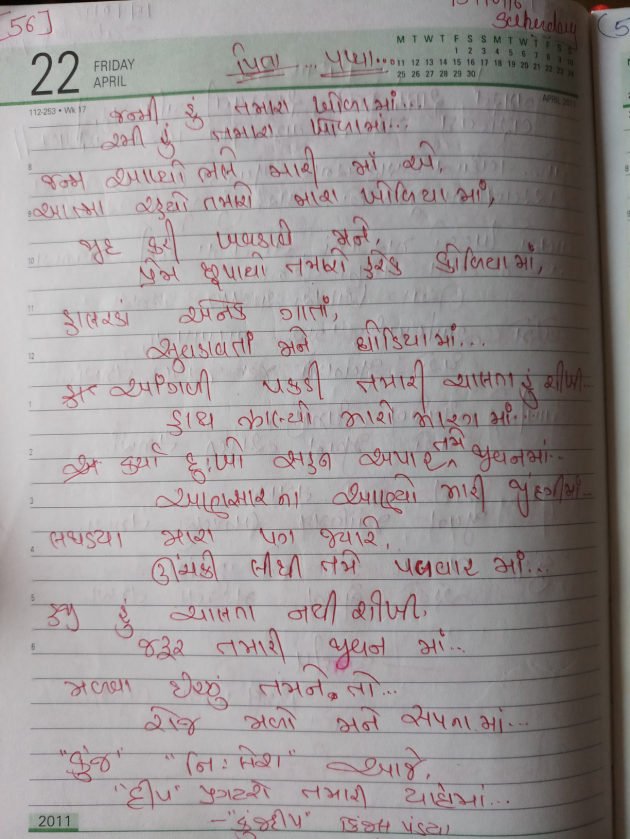 [56]
Saturday
22 FRIDAY
APRIL
M T W T F S S
1 2 3
4 5 6 7 8 9 10
11 12 13 14 15 16 17
18 19 20 21 22 23 24
25 26 27 28 29 30
112-253 • Wk 17
APRIL
જન્મી હું તમારા ખોળામાં...
રમી હું તમારા ખોળામાં...
જન્મ આપ્યો ભલે મારી માં એ,
આત્મા રહ્યો તમારો મારા ખોળિયા માં,
જીદ કરી ખવડાવી મને,
પ્રેમ છૂપાયો તમારો દરેક કોળિયા માં,
હાલરડાં અનેક ગાતાં,
સુવડાવતાં મને ઘોડિયા માં...
આંગળી પકડી તમારી ચાલતા હું શીખી...
હાથ ઝાલ્યો મારો મારગ માં...
કર્યા દુઃખો સહન અપાર તમે જીવનમાં..
અણસાર ના આપ્યો મારી જીંદગીમાં..
લથડ્યા મારા પગ જ્યારે,
ઊંચકી લીધી તમે પલવાર માં...
હજુ હું ચાલતા નથી શીખી,
જરૂર તમારી જીવન માં..
મળવા ઈચ્છું તમને તો...
રોજ મળો મને સપના માં...
"કુંજ" "નિઃશેષ" આજે,
"દીપ" પ્રગટશે તમારી યાદોમાં...
- "કુંજદીપ" કિંજલ પંડ્યા
2011